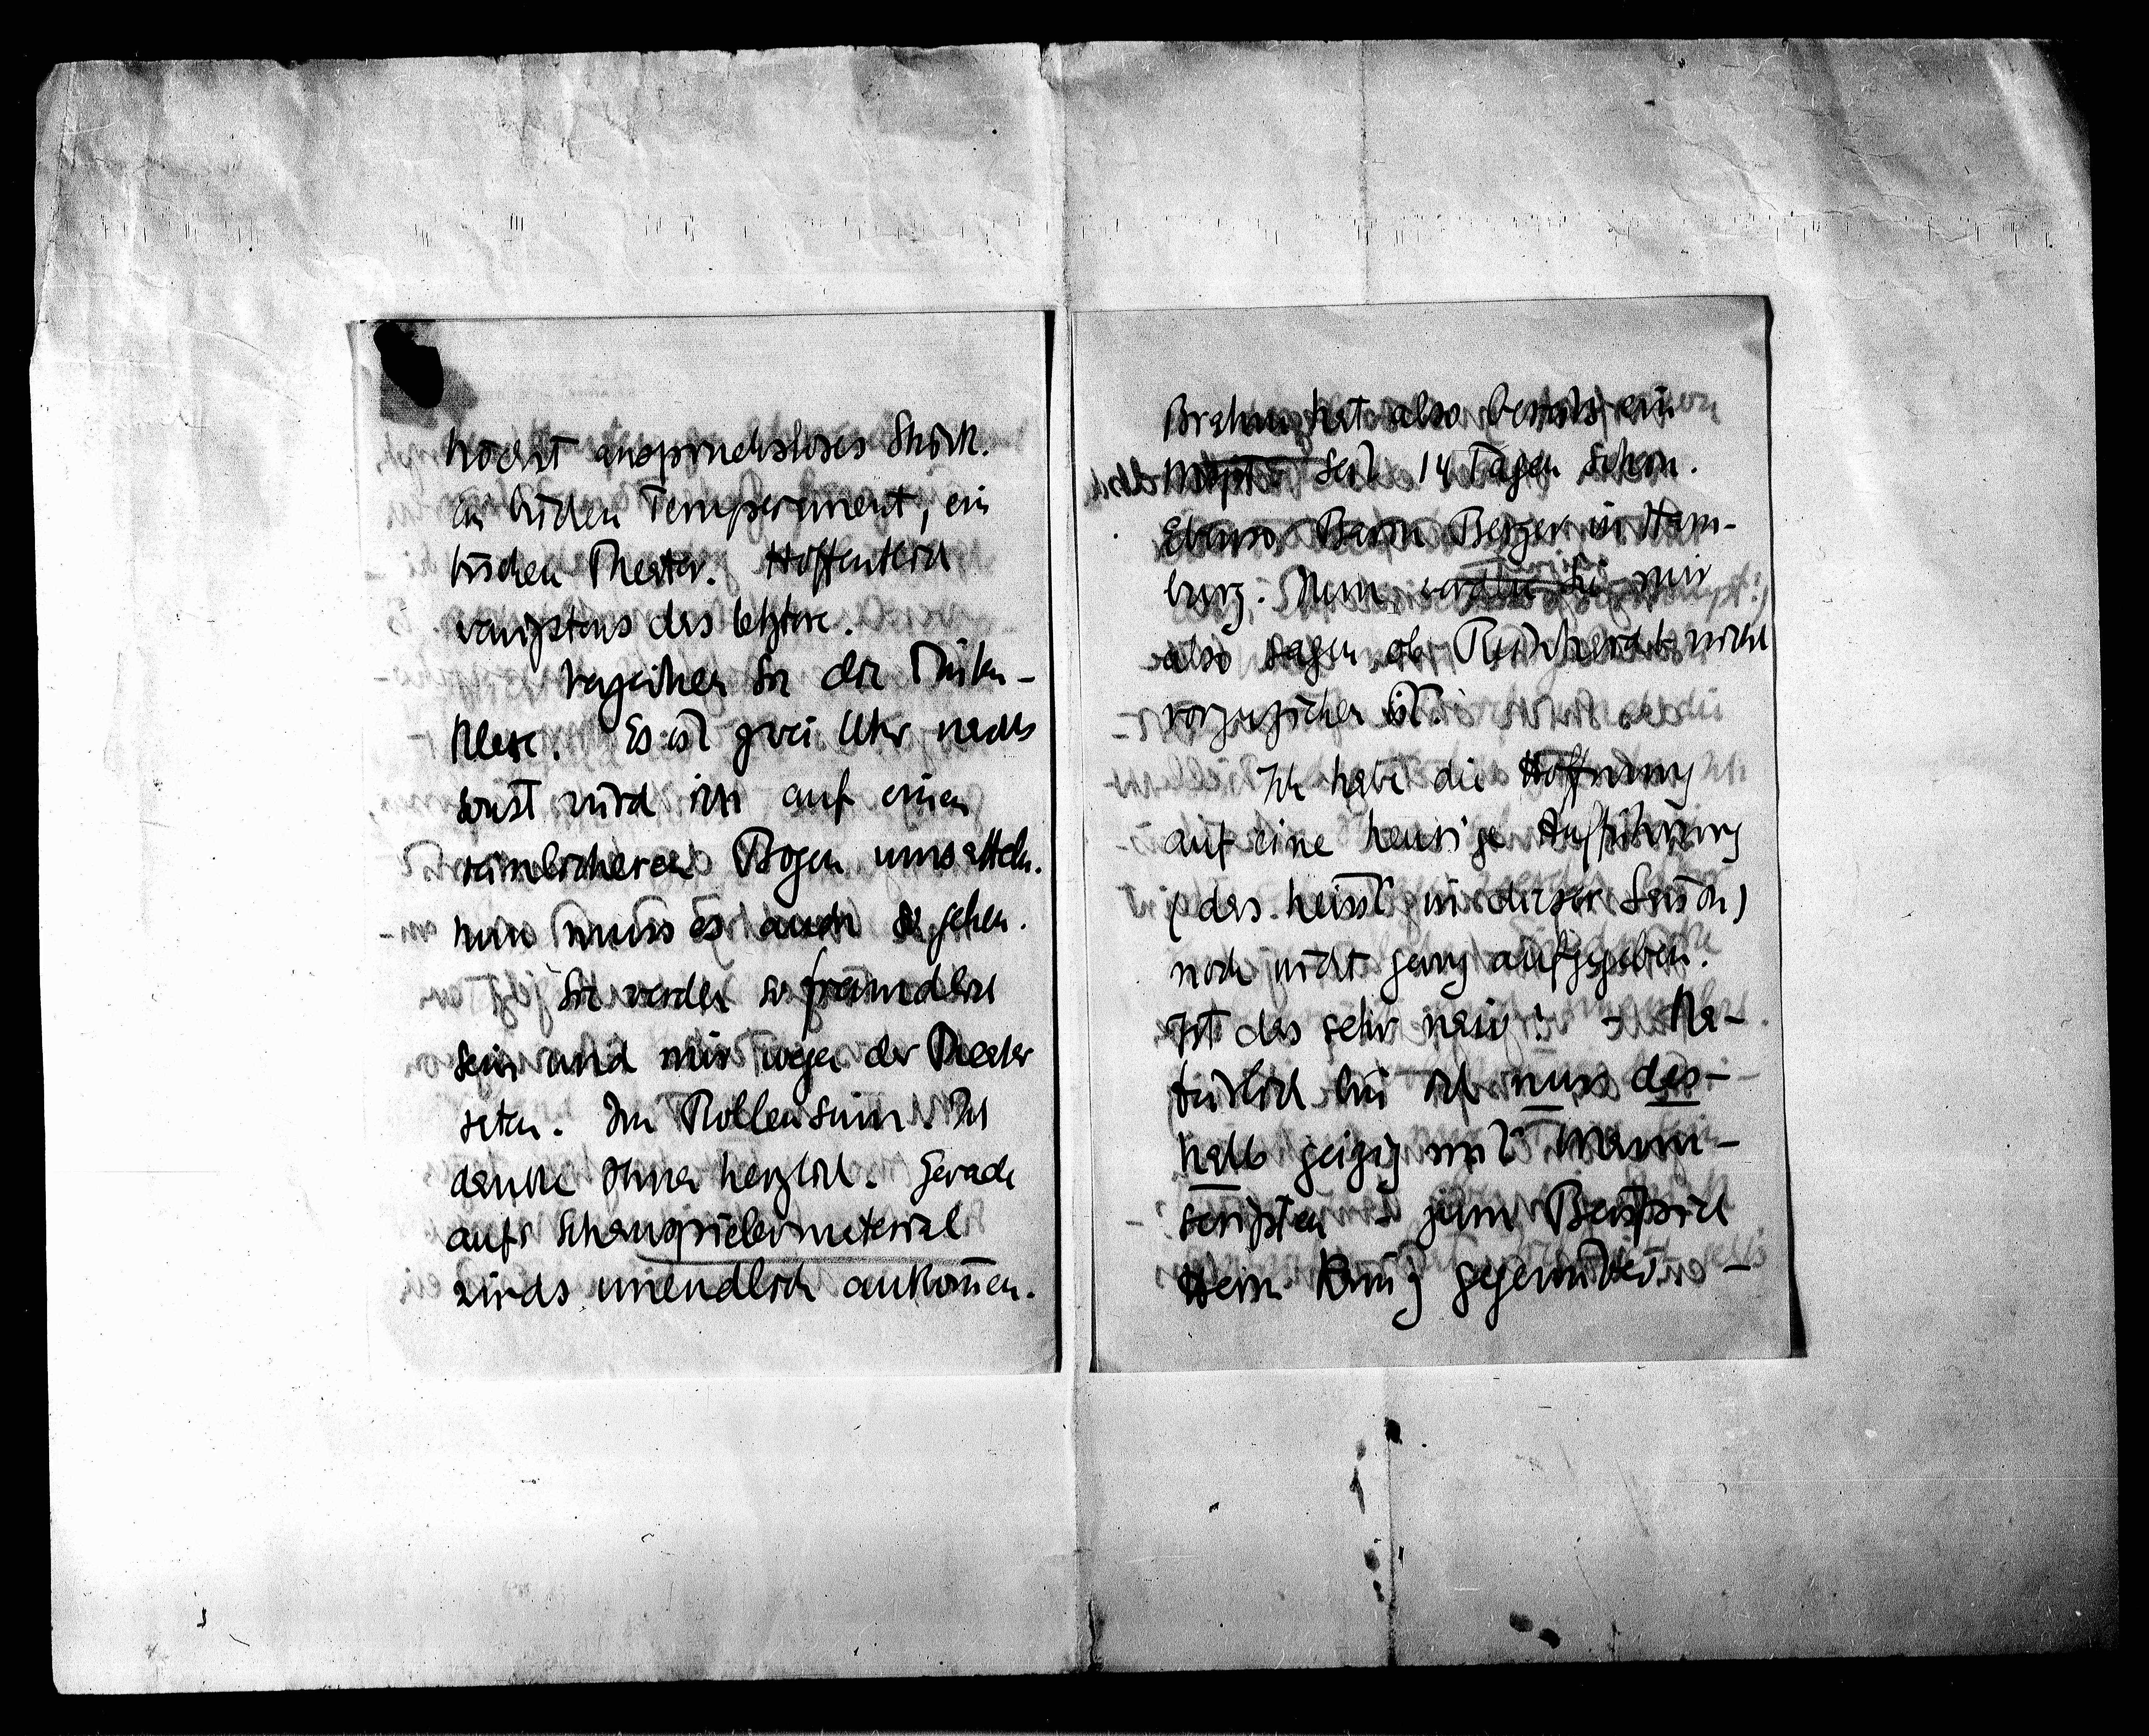 höchst anspruchsloses Stück.
ein bischen Temperament, ein
bischen Theater. Hoffentlich
wenigstens das letztere.
Verzeihen Sie die Tinten-
klexe. Es ist zwei Uhr nachts
sonst würd ich auf einen
reinlicheren Bogen umsatteln.
nun muss es auch so gehen.
Sie werden so freundlich
sein und mir wegen der Theater
raten. Im Rollensinn. Ich
danke Ihnen herzlich. Gerade
aufs Schauspielermaterial
wirds unendlich ankommen.
Brahm hat also bereits ein
Mscpt seit 14 Tagen schon.
Ebenso Baron Berger in Ham-
burg. Nun, werden Sie mir
also sagen ob Reinhardt nicht
vorzuziehen ist.
Ich habe die Hoffnung
auf eine heurige Aufführung
(das heisst in dieser Saison)
noch nicht ganz aufgegeben.
Ist das sehr naiv? – Na-
türlich bin ich nuss des-
halb geizig mit Manu-
scripten – zum Beispiel
Herrn gegenüber –